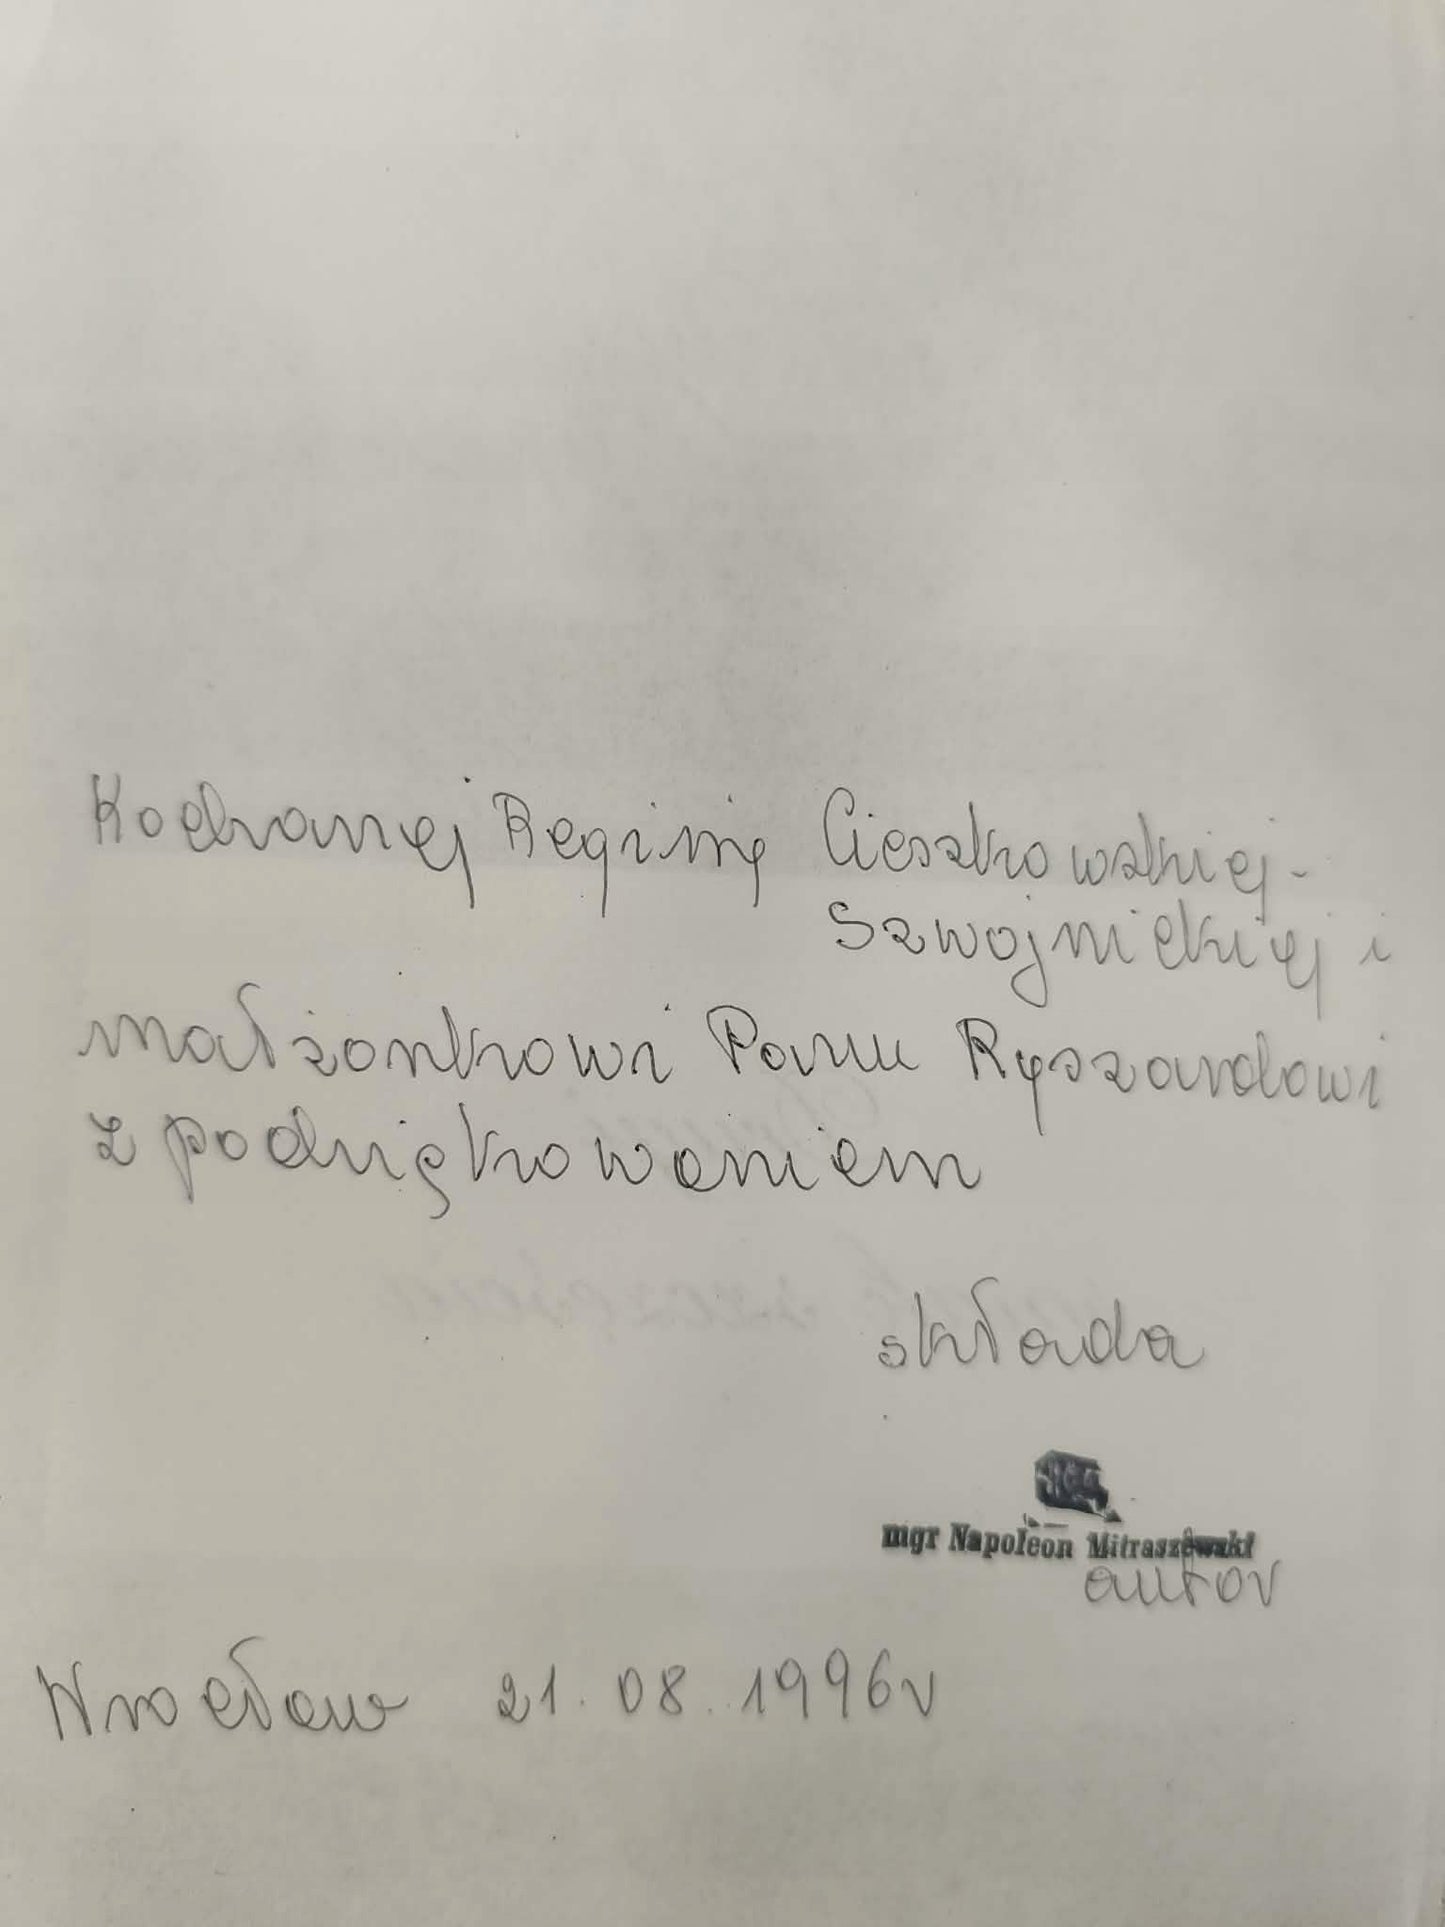 Kochanej Reginie Cieszkowskiej-
Szwojnickiej i
małżonkowi Panu Ryszardowi
z podziękowaniem
składa
mgr Napoleon Mitraszewski
autor
Wrocław 21.08.1996r